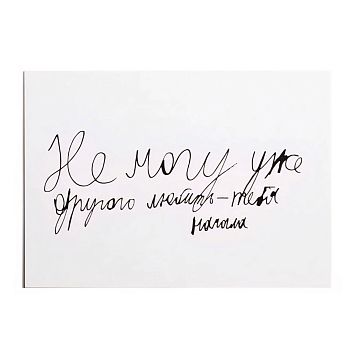 Не могу уже
другого любить - тебя
начала